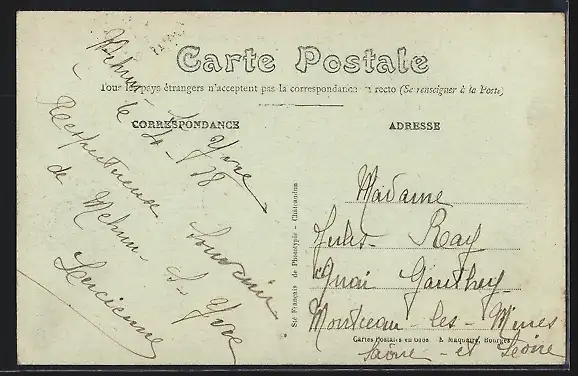 Carte Postale
Tous les pays étrangers n'acceptent pas la correspondance au recto (Se renseigner à la Poste)
CORRESPONDANCE
Mehun s- Yèvre
le
Respectueux Souvenir
de Mehun- s- Yèvre
Sté Française de Phototypie - Châteaudun
ADRESSE
Madame
Jules Ray
Quai Gauthey
Montceau-les-Mines
Saône-et Loire
Cartes Postales en Gros A. Maquaire, Bourges